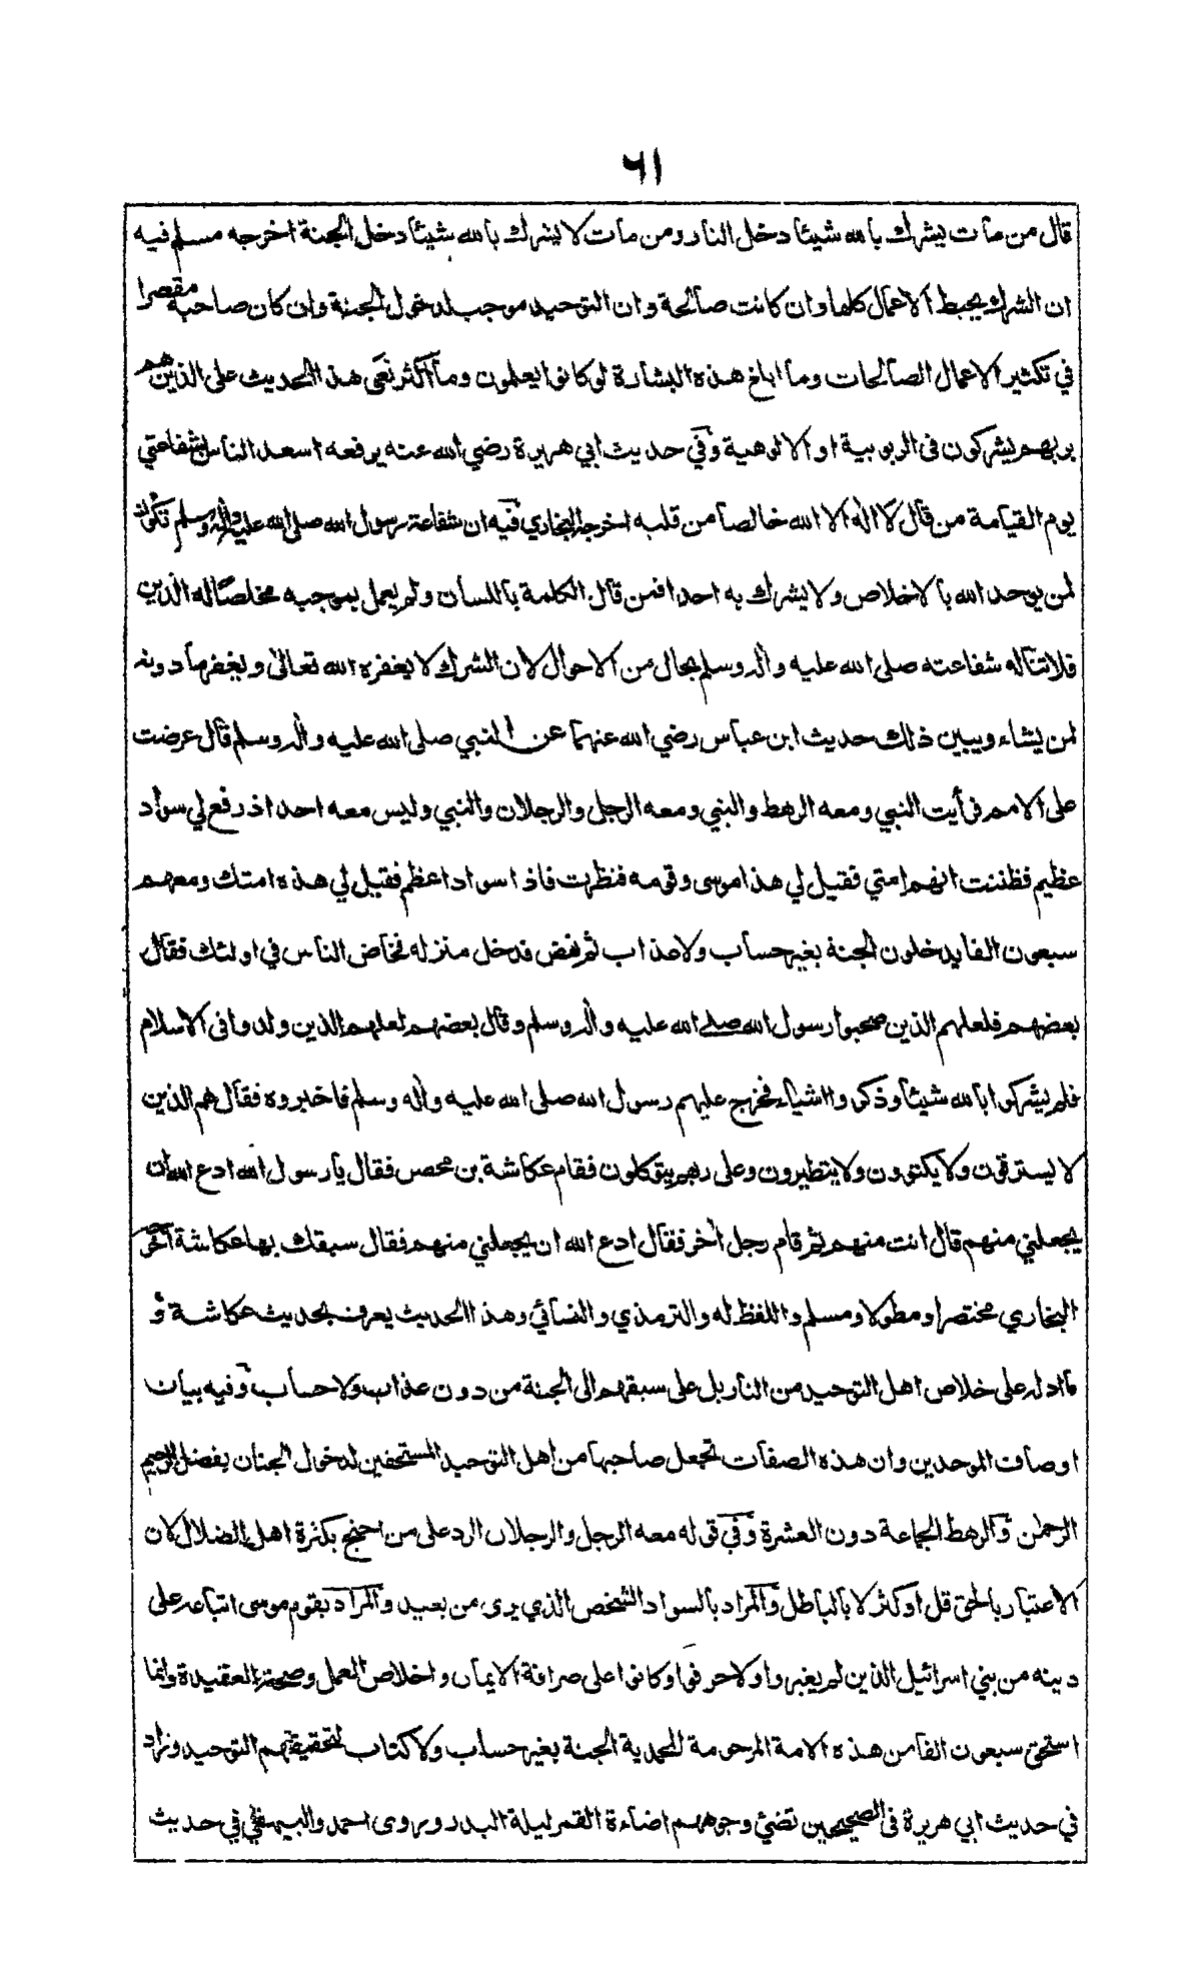 ٦١
قال من مات يشرك بالله شيئا دخل النار ومن مات لا يشرك بالله شيئا دخل الجنة اخرجه مسلم فيه
ان الشرك يحبط الاعمال كلها وان كانت صالحة وان التوحيد موجب لدخول الجنة وان كان صاحبه مقصرا
في تكثير الاعمال الصالحات وما ابلغ هذه البشارة لو كانوا يعلمون وما اكثر نعى هذا الحديث على الذين هم
بربهم يشركون فى الربوبية او الالوهية وفي حديث ابي هريرة رضي الله عنه يرفعه اسعد الناس بشفاعتي
يوم القيامة من قال لا اله الا الله خالصا من قلبه اخرجه البخاري فيه ان شفاعة رسول الله صلى الله عليه واله وسلم تكون
لمن يوحد الله بالاخلاص ولا يشرك به احدا فمن قال الكلمة باللسان ولم يعمل بموجبه مخلصا له الدين
فلا تناله شفاعته صلى الله عليه واله وسلم بحال من الاحوال لان الشرك لا يغفره الله تعالى ويغفر ما دونه
لمن يشاء ويبين ذلك حديث ابن عباس رضي الله عنهما عن النبي صلى الله عليه واله وسلم قال عرضت
على الامم فرأيت النبي ومعه الرهط والنبي ومعه الرجل والرجلان والنبي وليس معه احد اذ رفع لي سواد
عظيم فظننت انهم امتي فقيل لي هذا موسى وقومه فنظرت فاذا سواد اعظم فقيل لي هذه امتك ومعهم
سبعون الفا يدخلون الجنة بغير حساب ولا عذاب ثم نهض فدخل منزله فخاض الناس في اولئك فقال
بعضهم فلعلهم الذين صحبوا رسول الله صلى الله عليه واله وسلم وقال بعضهم لعلهم الذين ولدوا فى الاسلام
فلم يشركوا بالله شيئا وذكروا اشياء فخرج عليهم رسول الله صلى الله عليه واله وسلم فاخبروه فقال هم الذين
لا يسترقون ولا يكتوون ولا يتطيرون وعلى ربهم يتوكلون فقام عكاشة بن محصن فقال يا رسول الله ادع الله ان
يجعلني منهم قال انت منهم ثم قام رجل اخر فقال ادع الله ان يجعلني منهم فقال سبقك بها عكاشة اخرجه
البخاري مختصرا ومطولا ومسلم واللفظ له والترمذي والنسائي وهذا الحديث يعرف بحديث عكاشة و
ما ادله على خلاص اهل التوحيد من النار بل على سبقهم الى الجنة من دون عذاب ولا حساب وفيه بيان
اوصاف الموحدين وان هذه الصفات تجعل صاحبها من اهل التوحيد المستحقين لدخول الجنان بفضل الرحيم
الرحمن والرهط الجماعة دون العشرة وفي قوله معه الرجل والرجلان الرد على من احتج بكثرة اهل الضلال لان
الاعتبار بالحق قل او كثر لا بالباطل والمراد بالسواد الشخص الذي يرى من بعيد والمراد بقوم موسى اتباعه على
دينه من بني اسرائيل الذين لم يغيروا ولا حرفوا وكانوا على صرافة الايمان واخلاص العمل وصحة العقيدة وانما
استحق سبعون الفا من هذه الامة المرحومة المحمدية الجنة بغير حساب ولا كتاب لتحقيقهم التوحيد وزاد
في حديث ابي هريرة فى الصحيحين تضئ وجوههم اضاءة القمر ليلة البدر وروى احمد والبيهقي في حديث